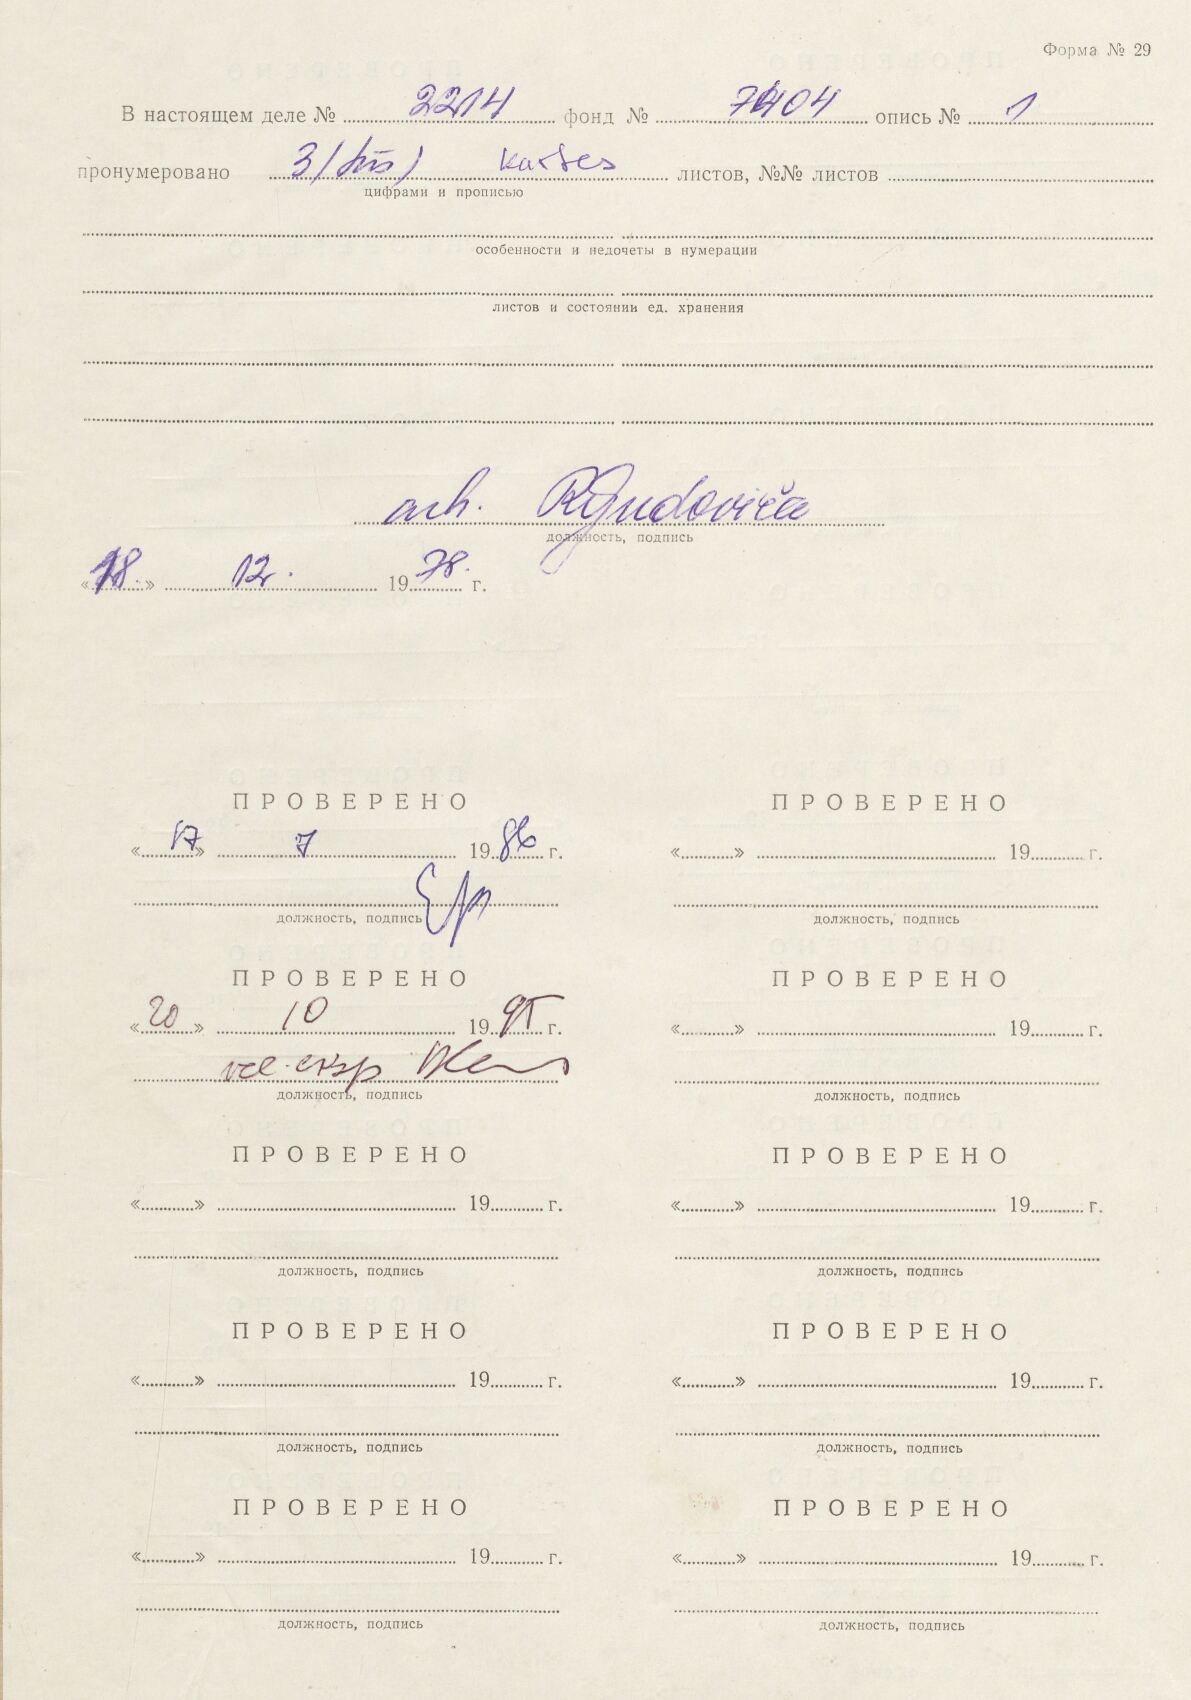 Форма № 29
В настоящем деле № 2214 фонд № 7404 опись № 1
пронумеровано 3 (trīs) kartes листов, №№ листов
цифрами и прописью
особенности и недочеты в нумерации
листов и состоянии ед. хранения
arh. RGudoviča
должность, подпись
«18.» 12. 1978. г.
ПРОВЕРЕНО ПРОВЕРЕНО
«17» 7 1986 г. « » 19 г.
должность, подпись должность, подпись
ПРОВЕРЕНО ПРОВЕРЕНО
«20» 10 1995 г. « » 19 г.
vec. eksp
должность, подпись должность, подпись
ПРОВЕРЕНО ПРОВЕРЕНО
« » 19 г. « » 19 г.
должность, подпись должность, подпись
ПРОВЕРЕНО ПРОВЕРЕНО
« » 19 г. « » 19 г.
должность, подпись должность, подпись
ПРОВЕРЕНО ПРОВЕРЕНО
« » 19 г. « » 19 г.
должность, подпись должность, подпись